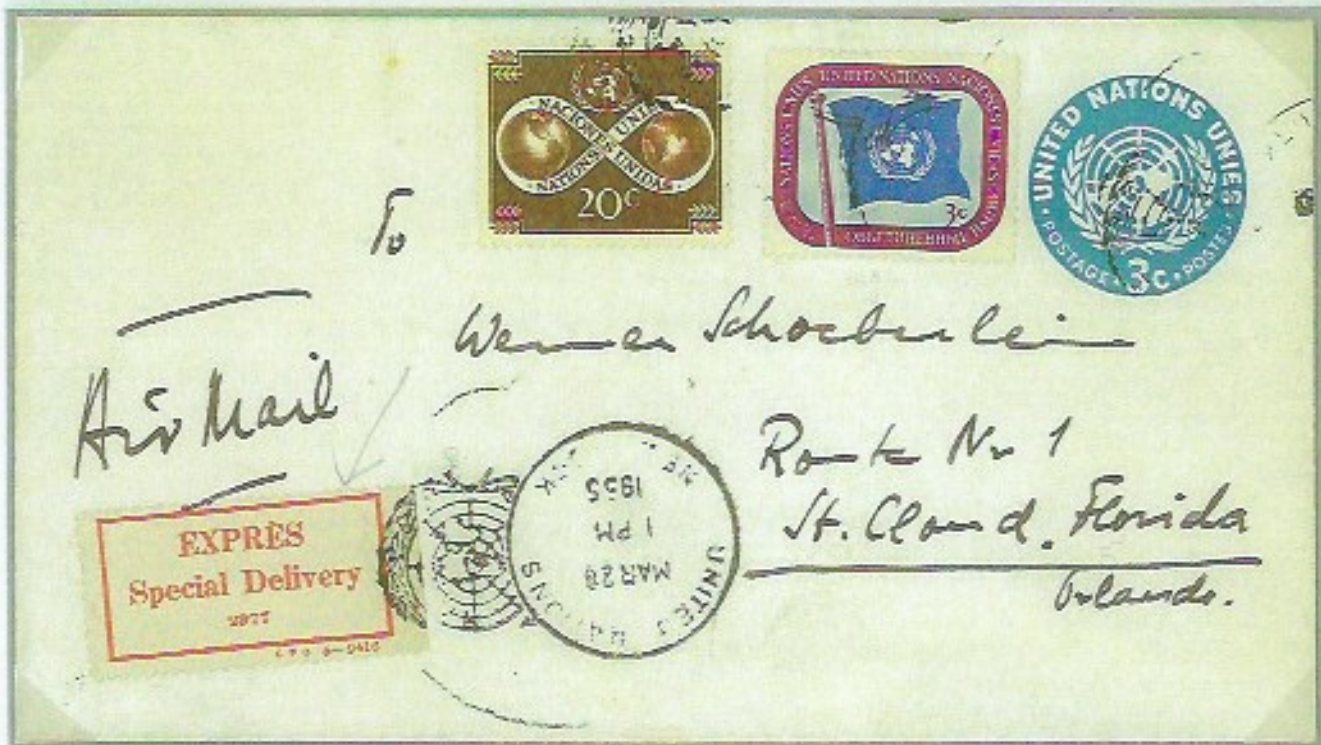 NACIONES UNIDAS
NATIONS UNIDAS
20c
NATIONS UNIES UNITED NATIONS NACIONES UNIDAS
3c
UNITED NATIONS UNIES
POSTAGE · 3c · POSTES
To
Werner Schoeberlein
Air Mail
Route Nr 1
St. Cloud, Florida
Orlando.
EXPRÈS
Special Delivery
2977
UNITED NATIONS
MAR 28
1 PM
1955